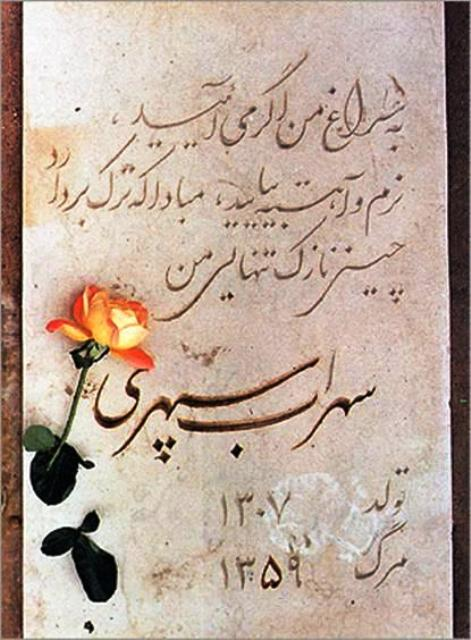 به سراغ من اگر می آیید،
نرم و آهسته بیایید، مبادا که ترک بردارد
چینی نازک تنهایی من
سهراب سپهری
تولد ۱۳۰۷
مرگ ۱۳۵۹